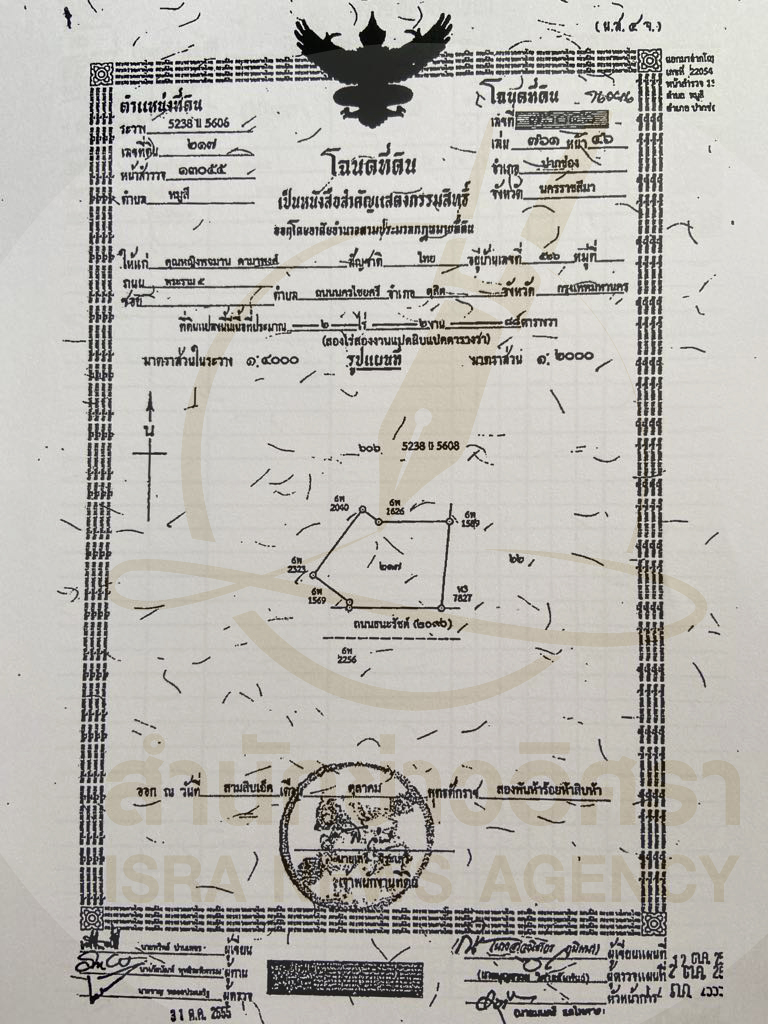 (น.ส. ๔ จ.)
ตำแหน่งที่ดิน
ระวาง 5238 II 5606
เลขที่ดิน ๒๑๗
หน้าสำรวจ ๑๓๐๕๕
ตำบล หมูสี
โฉนดที่ดิน
เลขที่
เล่ม ๗๖๑ หน้า ๔๖
อำเภอ ปากช่อง
จังหวัด นครราชสีมา
แยกมาจากโฉ
เลขที่ 22054
หน้าสำรวจ
ตำบล หมูสี
อำเภอ ปากช่
โฉนดที่ดิน
เป็นหนังสือสำคัญแสดงกรรมสิทธิ์
ออกโดยอาศัยอำนาจตามประมวลกฎหมายที่ดิน
ให้แก่ คุณหญิงพจมาน ดามาพงศ์ สัญชาติ ไทย อยู่บ้านเลขที่ ๕๒๖ หมู่ที่
ถนน พระราม ๕
ซอย ตำบล ถนนนครไชยศรี อำเภอ ดุสิต จังหวัด กรุงเทพมหานคร
ที่ดินแปลงนี้มีเนื้อที่ประมาณ ๒ ไร่ ๒ งาน ๘๘ ตารางวา
(สองไร่สองงานแปดสิบแปดตารางวา)
มาตราส่วนในระวาง ๑:๔๐๐๐ รูปแผนที่ มาตราส่วน ๑:๒๐๐๐
น
๖๐๖ 5238 II 5608
6พ
2040
6พ
1626
6พ
1589
6พ
2323
๒๑๗
๒๒
6พ
1569
7827
ถนนธนะรัชต์ (๒๐๙๐)
6พ
2256
ออก ณ วันที่ สามสิบเอ็ด เดือน ตุลาคม พุทธศักราช สองพันห้าร้อยห้าสิบห้า
เจ้าพนักงานที่ดิน
สำนักข่าวอิศรา
ISRA NEWS AGENCY
ผู้เขียน
ผู้ทาน
ผู้ตรวจ
31 ต.ค. 2555
ผู้เขียนแผนที่
ผู้ตรวจแผนที่
หัวหน้าการ